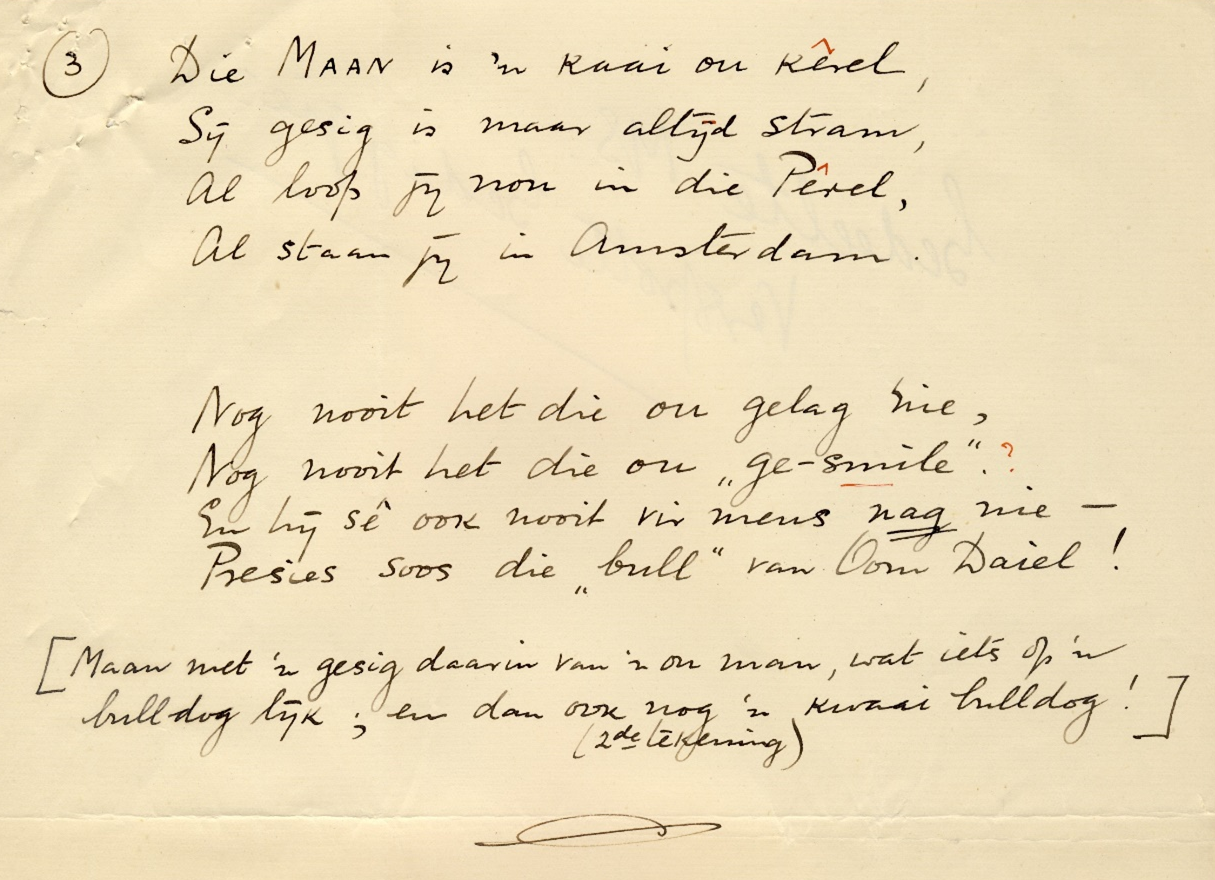 3 Die MAAN is 'n kaai ou kêrel,
Sy gesig is maar altyd stram,
Al loop jy nou in die Pêrel,
Al staan jy in Amsterdam.
Nog nooit het die ou gelag nie,
Nog nooit het die ou „ge-smile“. ?
En hy sê ook nooit vir mens nag nie —
Presies soos die „bull“ van Oom Daiel!
[Maan met 'n gesig daarin van 'n ou man, wat iets op 'n
bulldog lyk; en dan ook nog 'n kwaai bulldog!]
(2de tekening)